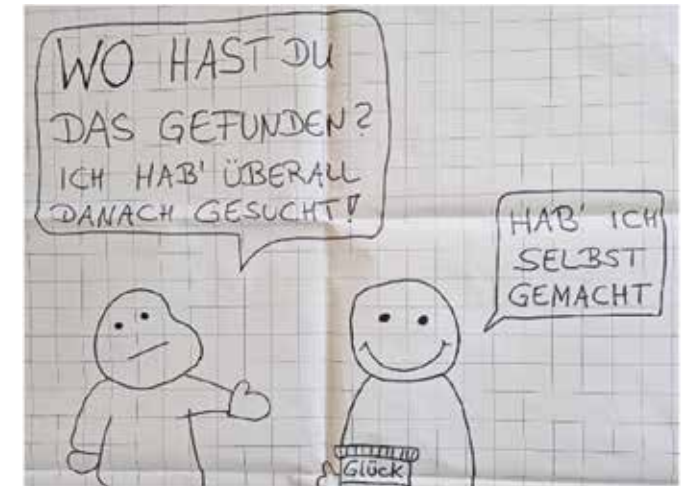 WO HAST DU
DAS GEFUNDEN?
ICH HAB' ÜBERALL
DANACH GESUCHT!
HAB' ICH
SELBST
GEMACHT
Glück